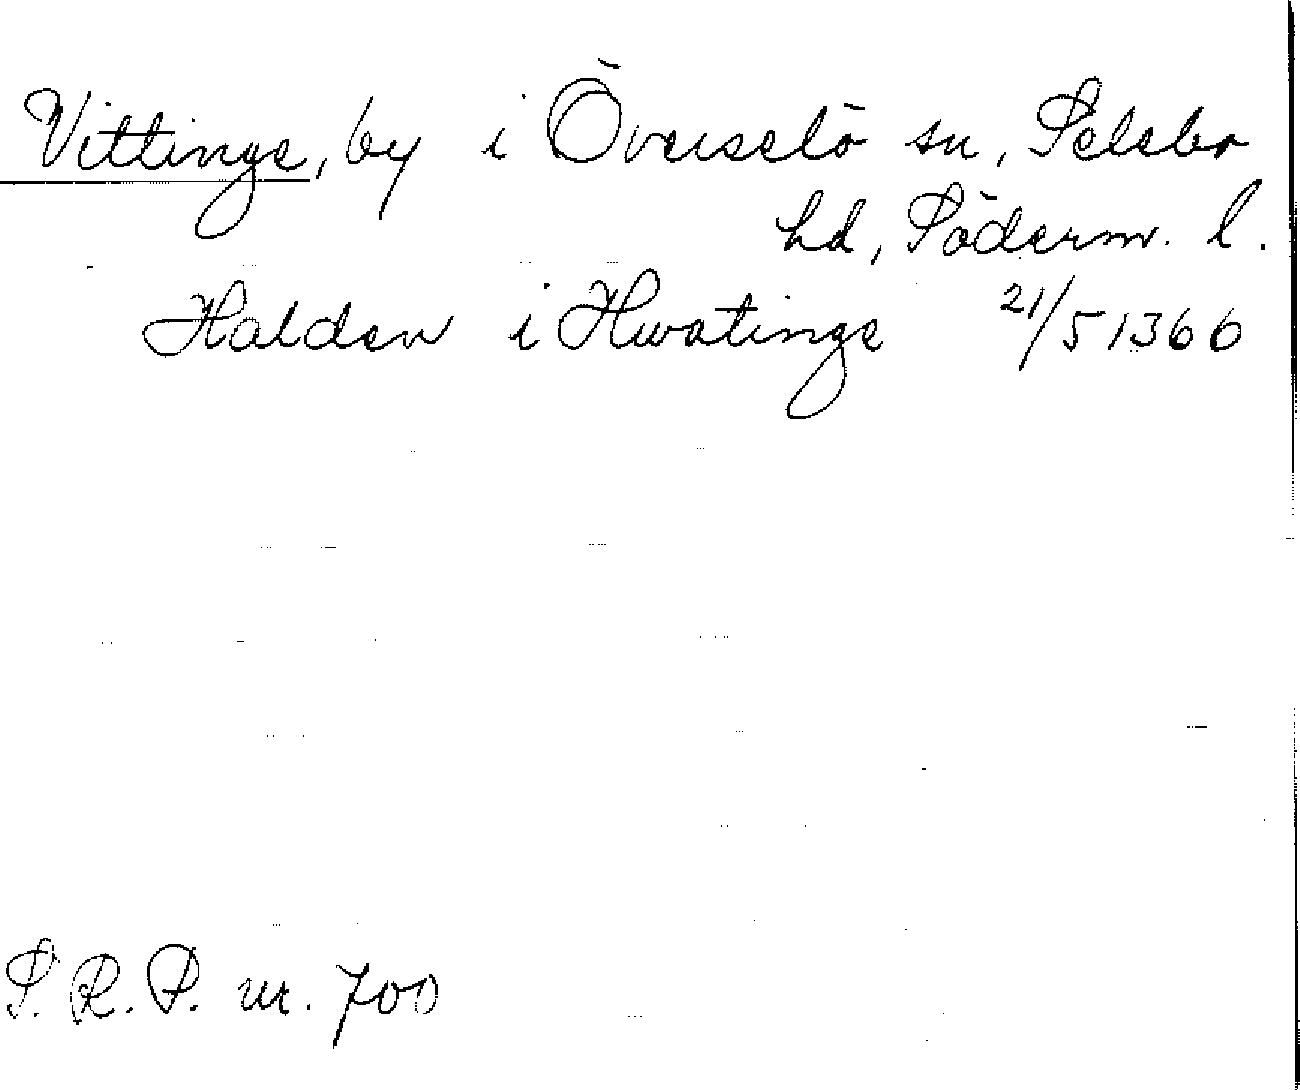 Vittinge, by i Överselö sn, Selebo
hd, Söderm. l.
Halden i Hwatinge 21/5 1366
S.R.P. nr. 700